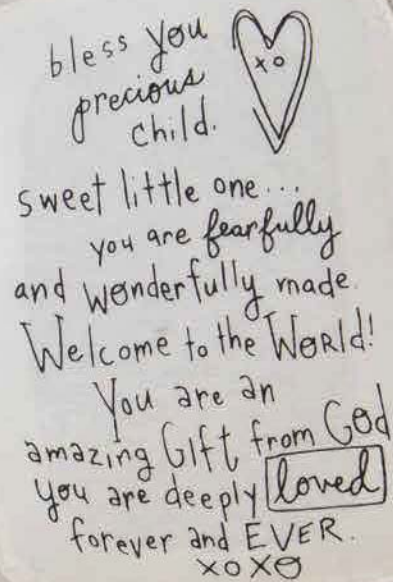 bless you
xo
precious
child.
sweet little one...
you are fearfully
and wonderfully made.
Welcome to the World!
You are an
amazing Gift from God
you are deeply loved
forever and EVER.
xoxo